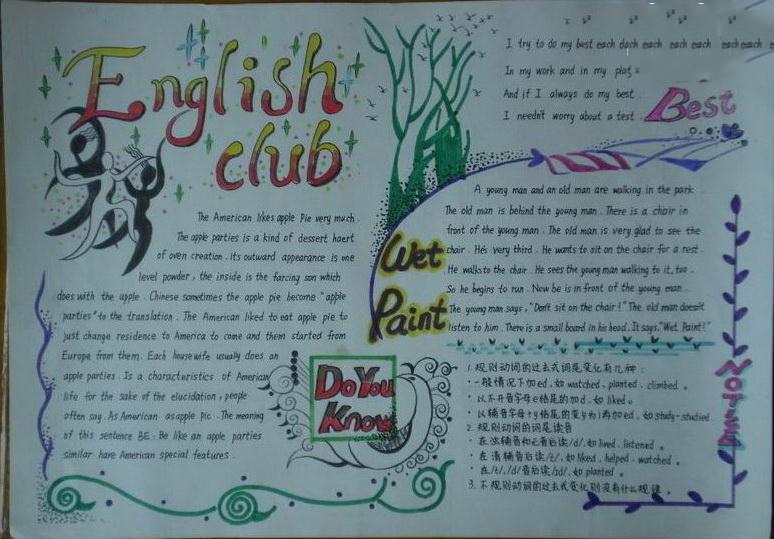 English
club
The American likes apple Pie very much.
The apple parties is a kind of dessert haert
of oven creation. Its outward appearance is one
level powder, the inside is the farcing son which
does with the apple. Chinese sometimes the apple pie become "apple
parties" to the translation. The American liked to eat apple pie to
just change residence to America to come and them started from
Europe from them. Each housewife usually does an
apple parties. Is a characteristics of American
life for the sake of the elucidation, people
often say. As American as apple pic. The meaning
of this sentence BE: Be like an apple parties
similar have American special features.
Do You
Know
I try to do my best each dach each each each each each e
In my work and in my plat
And if I always do my best.
I needn't worry about a test.
Best
Wet
Paint
A young man and an old man are walking in the park.
The old man is behind the young man. There is a chair in
front of the young man. The old man is very glad to see the
chair. He's very third. He wants to sit on the chair for a rest.
He walks to the chair. He sees the young man walking to it, too.
So he begins to run. Now be is in front of the young man.
The young man says, "Don't sit on the chair!" The old man doesn't
listen to him. There is a small board in his head. It says, "Wet. Paint!"
1. 规则动词的过去式词是变化有几种:
·一般情况下加ed, 如 watched, planted. climbed。
· 以不开音字母e结尾的加d, 如 liked。
· 以辅音字母+y结尾的变y为i再加ed, 如 study-studied
2. 规则动词的词是读音
· 在浊辅音和元音后读/d/, 如 lived. listened。
· 在清辅音后读/t/, 如 liked. helped. watched。
· 在/t/, /d/音后读/ɪd/, 如 planted。
3. 不规则动词的过去式变化则没有什么规律。